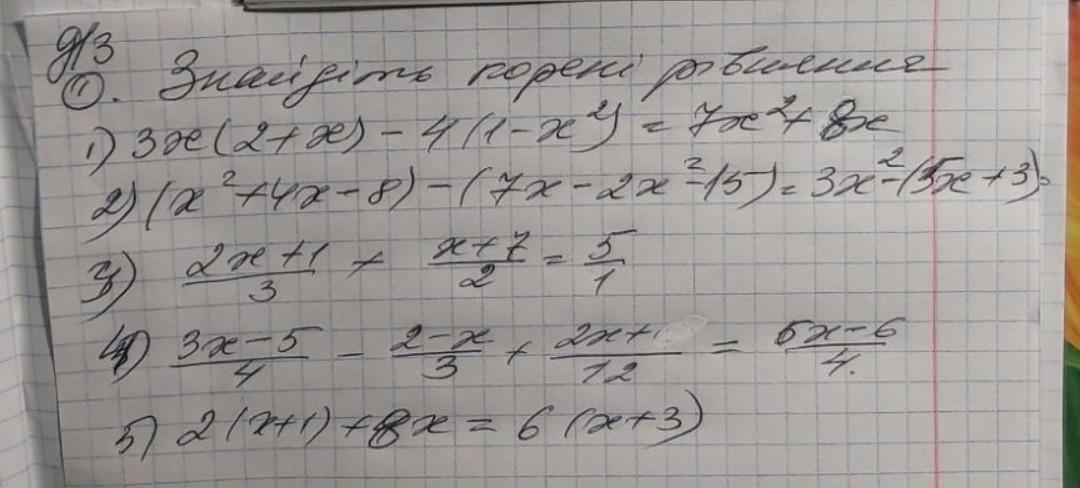 Д/З
①. Знайдіть корені рівняння
1) 3x(2+x) - 4(1-x²) = 7x² + 8x
2) (x² + 4x - 8) - (7x - 2x² - 15) = 3x² - (5x + 3)
3) (2x+1)/3 + (x+7)/2 = 5/1
4) (3x-5)/4 - (2-x)/3 + (2x+)/12 = (5x-6)/4.
5) 2(x+1) + 8x = 6(x+3)